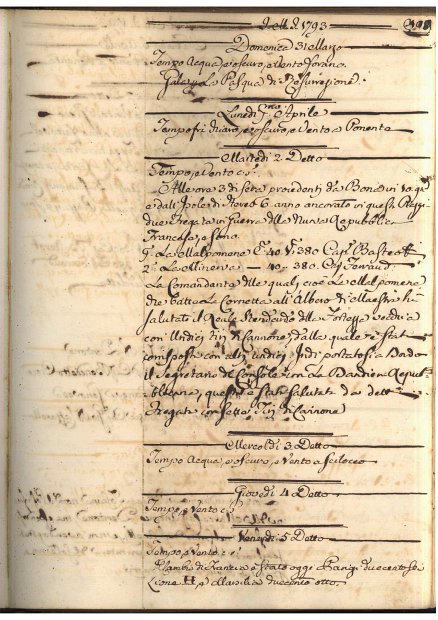 Dell' 1793
Domenica 31 Marzo
Tempo Acqua, e oscuro, e Vento forano.
Pasqua di Resurrezione.
Lunedì Pmo Aprile
Tempo e oscuro, e Vento a Ponente
Martedì 2. Detto
Tempo, e Vento
All'ore 3 di sera procedenti da in 10. g
e dall' Isole di 6 anno ancorato in queste
due Fregate in Guerra della Nuova Republica
Francese, e sono
La Melpomene 40. 380 Cap
2: La Minerva — 40 „ 380. Cap
La Comandante delle quali, cioè La Melpomene
che batte La Cornetta all' Albero di Maestra hà
salutato il Reale Stendardo della Fortezza vecchia
con Undici Tiri di Cannone, dalla quale è stat
composto con altri undici, Indi portatosi a Bordo
il Segretario di Console con La Bandiera Repub
blicana, questo è stato salutato da dett
Fregate con sette Tiri di Cannone
Mercoldì 3. Detto
Tempo Acqua, e oscuro, e Vento a Scilocco
Giovedì 4 Detto
Tempo, e Vento
Venerdì 5 Detto
Tempo, e Vento
Cambi di Francia è stato oggi Parigi duecento
Lione e Marsilia duecento otto.